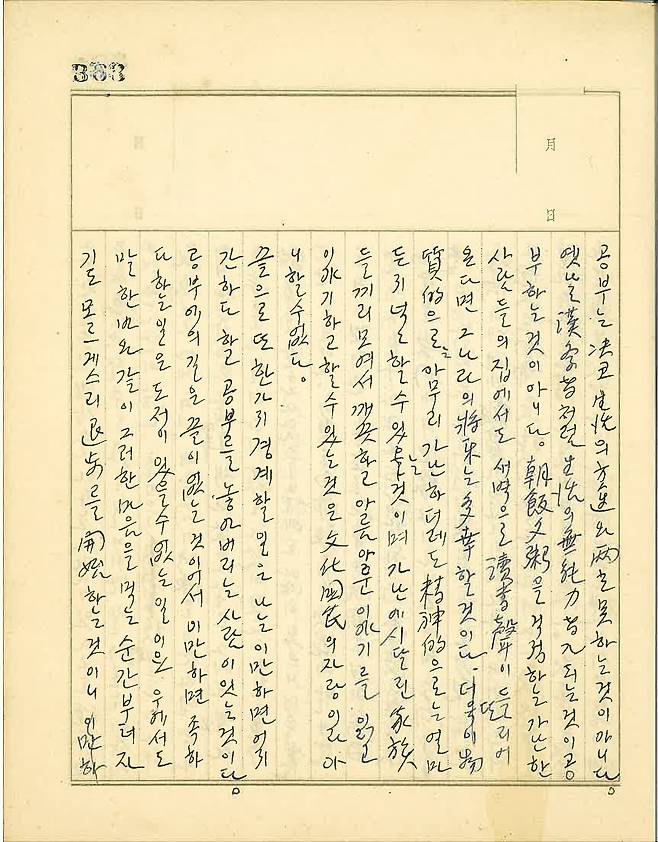 383
月
日
공부는 決코 生活의 交迭와 両立 못하는것이 아니다
옛날 漢学者처럼 生活의 無能力者가 되는것이 공
부하는것이 아니다. 朝飯夕粥을 걱정하는 가난한
사람들의 집에서도 새벽으로 讀書聲이 들리어
온다면 그 나라의 將来는 多幸할것이다. 더욱이 物
質的으로는 아무리 가난하더래도 精神的으로는 얼마
든지 넉넉할수 있을것이며 가난에 시달린 家族
들끼리 모여서 깨끗하고 아름다운 이얘기를 읽고
이얘기하고 할수 있는것은 文化国民의 자랑이 아
니할수없다.
끝으로 또한가지 경계할 일은 나는 이만하면 어지
간하다 하고 공부를 놓아버리는 사람이 있는것이다
공부에의 길은 끝이 없는것이어서 이만하면 족하
다 하는 일은 도저히 있을수 없는 일이요 우에서도
말한바와 같이 그러한 마음을 먹는 순간부터 자
기도 모르게스리 退步를 開始하는것이니 이만하